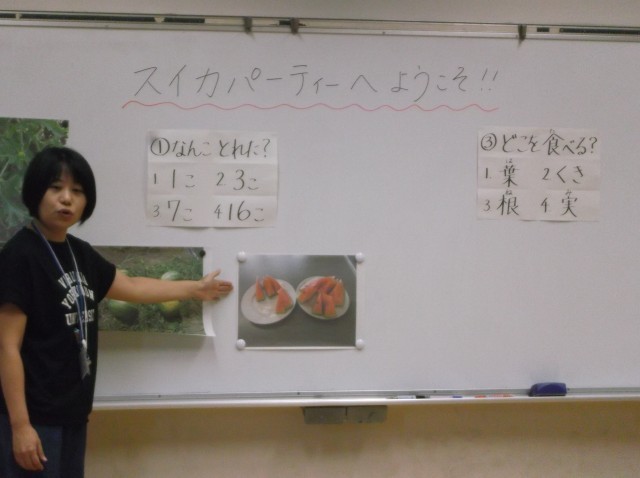 スイカパーティーへようこそ!!
①なんことれた?
1 1こ 2 3こ
3 7こ 4 16こ
③どこを食べる?
1. 葉 2 くき
3 根 4 実